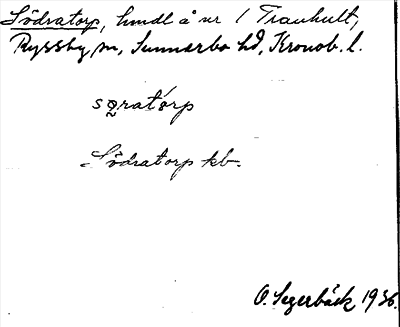 Södratorp, hmdl å nr 1 Tranhult,
Ryssby sn, Sunnerbo hd, Kronob. l.
sǫratórp
Södratorp kb.
O. Segerbäck 1936.